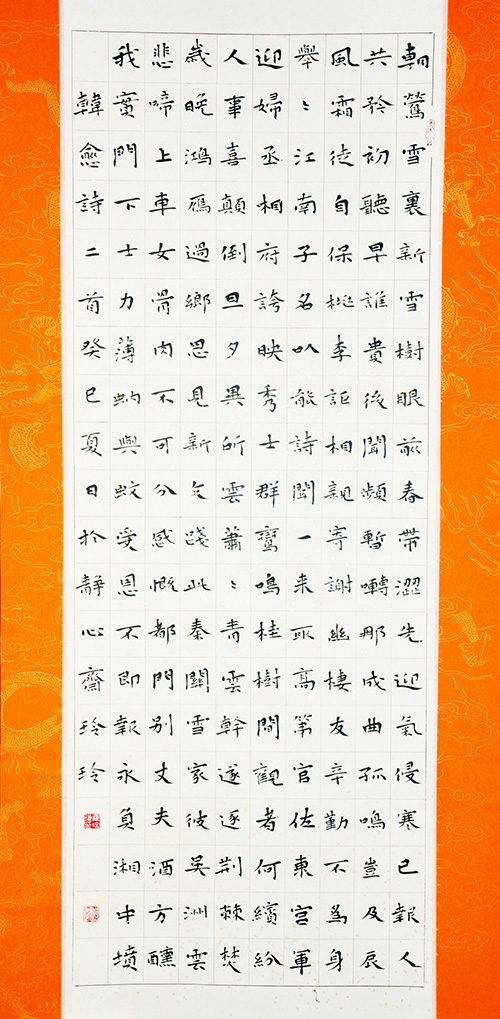 朝鶯雪裏新雪樹眼前春帶澀先迎氣侵寒已報人
共矜初聽早誰貴後聞頻暫囀那成曲孤鳴豈及辰
風霜徒自保桃李詎相親寄謝幽棲友辛勤不為身
舉〻江南子名以能詩聞一來取高第官佐東宮軍
迎婦丞相府誇映秀士群鸞鳴桂樹間觀者何繽紛
人事喜顛倒旦夕異所雲蕭〻青雲幹遂逐荊棘焚
歲晚鴻雁過鄉思見新文踐此秦關雪家彼吳洲雲
悲啼上車女骨肉不可分感慨都門別丈夫酒方醺
我實門下士力薄蚋與蚊受恩不即報永負湘中墳
韓愈詩二首癸巳夏日於靜心齋玲玲